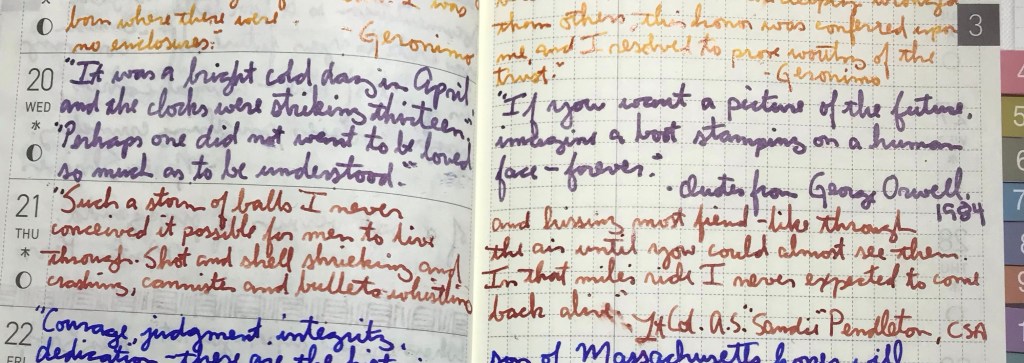 born where there were
no enclosures."
- Geronimo
20
WED
*
"It was a bright cold day in April
and the clocks were striking thirteen"
"Perhaps one did not want to be loved
so much as to be understood."
21
THU
*
"Such a storm of balls I never
conceived it possible for men to live
through. Shot and shell shrieking and
crashing, cannister and bullets whistling
22
FRI
"Courage, judgment, integrity,
dedication - these are the
3
than others this honor was conferred upon
me, and I resolved to prove worthy of the
trust."
- Geronimo
"If you want a picture of the future,
imagine a boot stamping on a human
face - forever."
- Quotes from George Orwell,
1984
and hissing most fiend-like through
the air until you could almost see them.
In that miles ride I never expected to come
back alive."
- Lt Col. A.S. "Sandie" Pendleton, CSA
son of Massachusetts hopes will
4
5
6
7
8
9
1